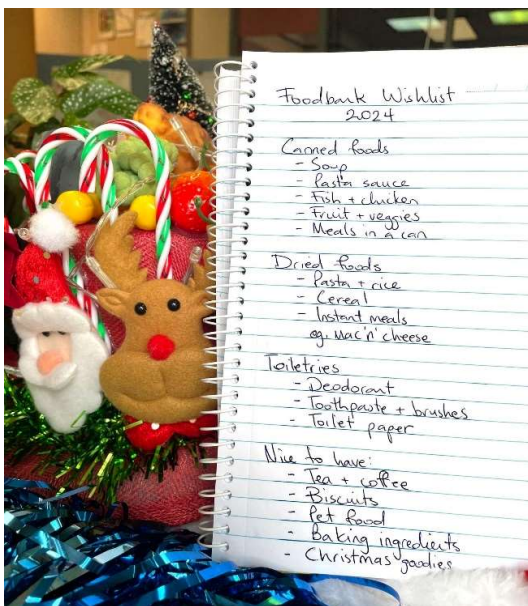 Foodbank Wishlist
2024
Canned foods
- Soup
- Pasta sauce
- Fish + chicken
- Fruit + veggies
- Meals in a can
Dried foods
- Pasta + rice
- Cereal
- Instant meals
eg. Mac 'n' cheese
Toiletries
- Deodorant
- Toothpaste + brushes
- Toilet paper
Nice to have:
- Tea + coffee
- Biscuits
- Pet food
- Baking ingredients
- Christmas goodies